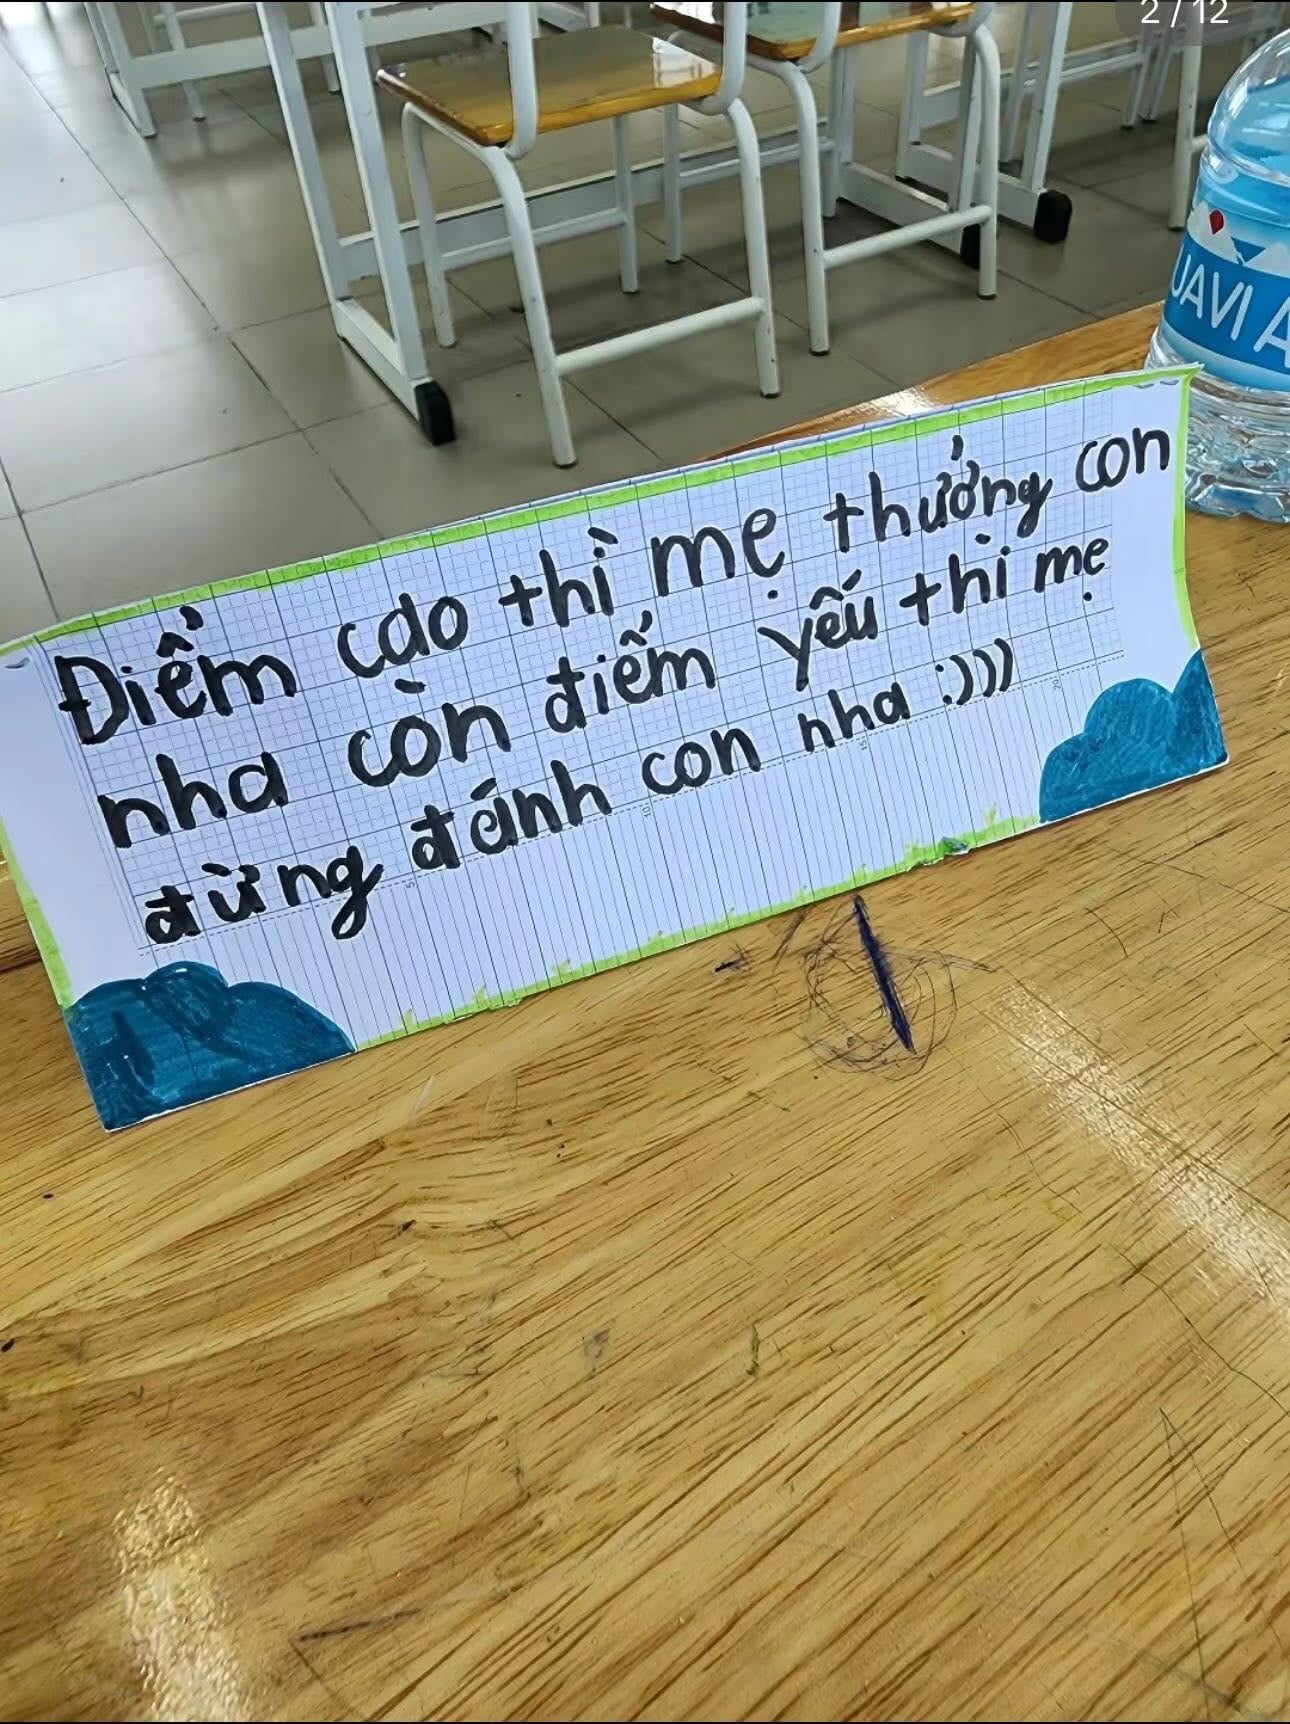 2 / 12
JAVI A
Điểm cao thì mẹ thưởng con
nha còn điểm yếu thì mẹ
đừng đánh con nha :)))
5
10
15
20